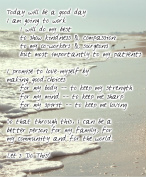 Today will be a good day
I am going to work
I will do my best
to show kindness & compassion
to my co workers & surgeons
but most importantly to my patients
I promise to love myself by
making good choices
for my body -- to keep me strength
for my mind -- to keep me sharp
for my spirit -- to keep me loving
So that through this I can be a
better person for my family for
my community and for the world
Let's Do This!